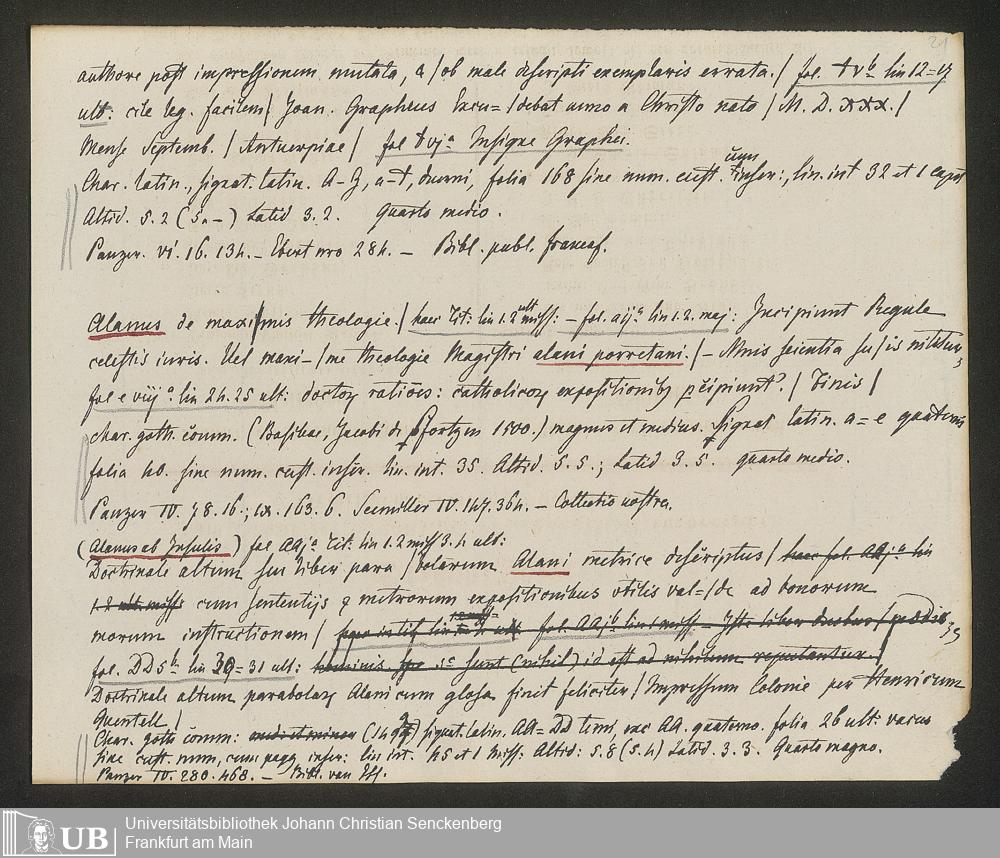 21
authore post impressionem mutata, & / ob male descripti exemplaris errata. / fol. tvb lin 12=17
ult: cile leg. facilem / Joan. Grapheus Excu= / debat anno a Christo nato / M. D. XXX. /
Mense Septemb. / Antuerpiae / fol tvja Insigne Graphei.
Char. latin., signat. latin. A–Z, a–t, duerni, folia 168 sine num. cust. cum inser:, lin. int 32 et 1 capit
Altid. 5.2 (5.–) Latid 3.2. Quarto medio.
Panzer. VI. 16. 134. – Ebert nro 284. – Bibl. publ. francof.
Alanus de maxi/mis theologie. / haec Tit: lin 1.2 ult miss: – fol. aija lin 1.2. maj: Incipiunt Regule
celestis iuris. Vel maxi– / me theologie Magistri alani porretani. / – Omnis scientia su / is nititur
fol e viija lin 24.25 ult: doctoy rationes: catholicoy expositionibus pcipiunt. / Finis /
char. goth. comm. (Basileae, Jacobi de Pfortzen 1500.) magnus et medius. Signat latin. a=e quaterni
folia 40. sine num. cust. inser. lin. int. 35. Altid. 5.5.; Latid 3.5. quarto medio.
Panzer IV. 78. 16.; IX. 163. 6. Seemiller IV. 147. 364. – Collectio nostra.
(Alanus ab Insulis) fol AAja Tit: lin 1.2 miss 3.4 ult:
Doctrinale altum seu liber para / bolarum Alani metrice descriptus / haec fol AAja lin
1.2 ult miss cum sententijs & metrorum expositionibus utilis val= / de ad bonorum
morum instructionem / fol AAjb lin 1 miss – Iste liber
fol. DD5b lin 30=31 ult: hominis sunt (nihil) id est ad nihilum reputantur. /
Doctrinale altum parabolay Alani cum glosa finit feliciter / Impressum Colonie per Henricum
Quentell /
Char. goth comm: signat. latin. AA=DD terni, exc AA. quaterno. folia 26 ult: vacuo
sine cust. num, cum pagg inser: lin int. 45 et 1 miss: Altid: 5.8 (5.4) Latid. 3.3. Quarto magno.
Panzer IV. 280. 468. – Bibl. van Ess.
Universitätsbibliothek Johann Christian Senckenberg
Frankfurt am Main
UB